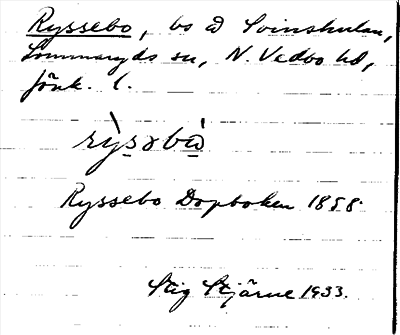 Ryssebo, bs å Svinshulan,
Lommaryds sn, N. Vedbo hd,
Jönk. l.
rỳsəbò
Ryssebo Dopboken 1858
Stig Stjärne 1933.